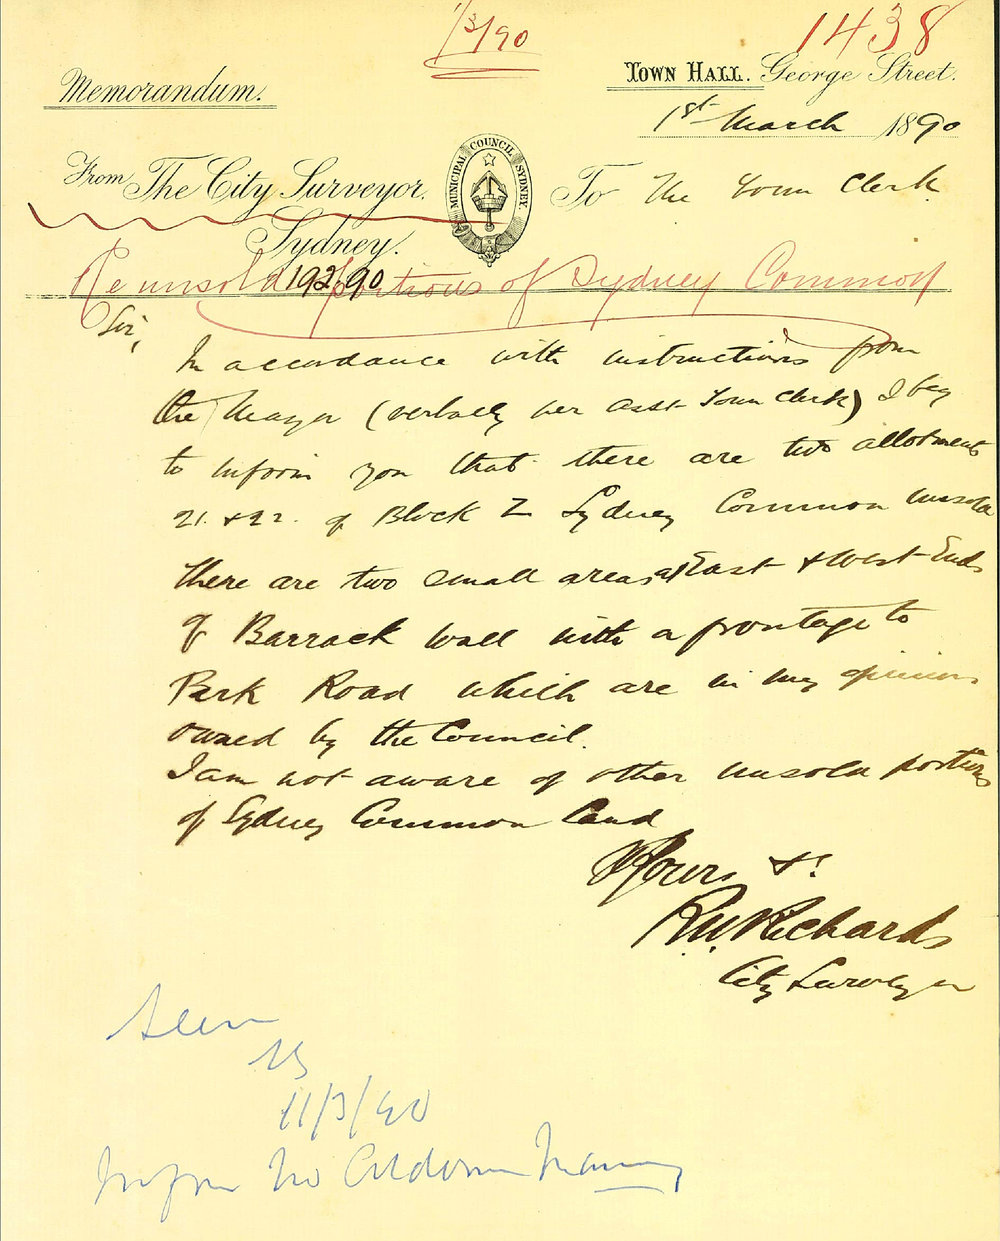 1/3/90
1438
Memorandum.
TOWN HALL. George Street.
1st March 1890
From The City Surveyor.
Sydney.
MUNICIPAL COUNCIL SYDNEY.
To The Town Clerk
192.90
Re unsold portions of Sydney Common
Sir,
In accordance with instructions from
the Mayor (verbally per Asst Town Clerk) I beg
to inform you that there are two allotments
21. & 22. of Block Z Sydney Common unsold
there are two small areas at East & West Ends
of Barrack wall with a frontage to
Park Road which are in my opinion
owned by the Council.
I am not aware of other unsold portions
of Sydney Common Land
Yours &c
R.W. Richards
City Surveyor
Seen
11/3/90
Inform Mr Alderman Manning